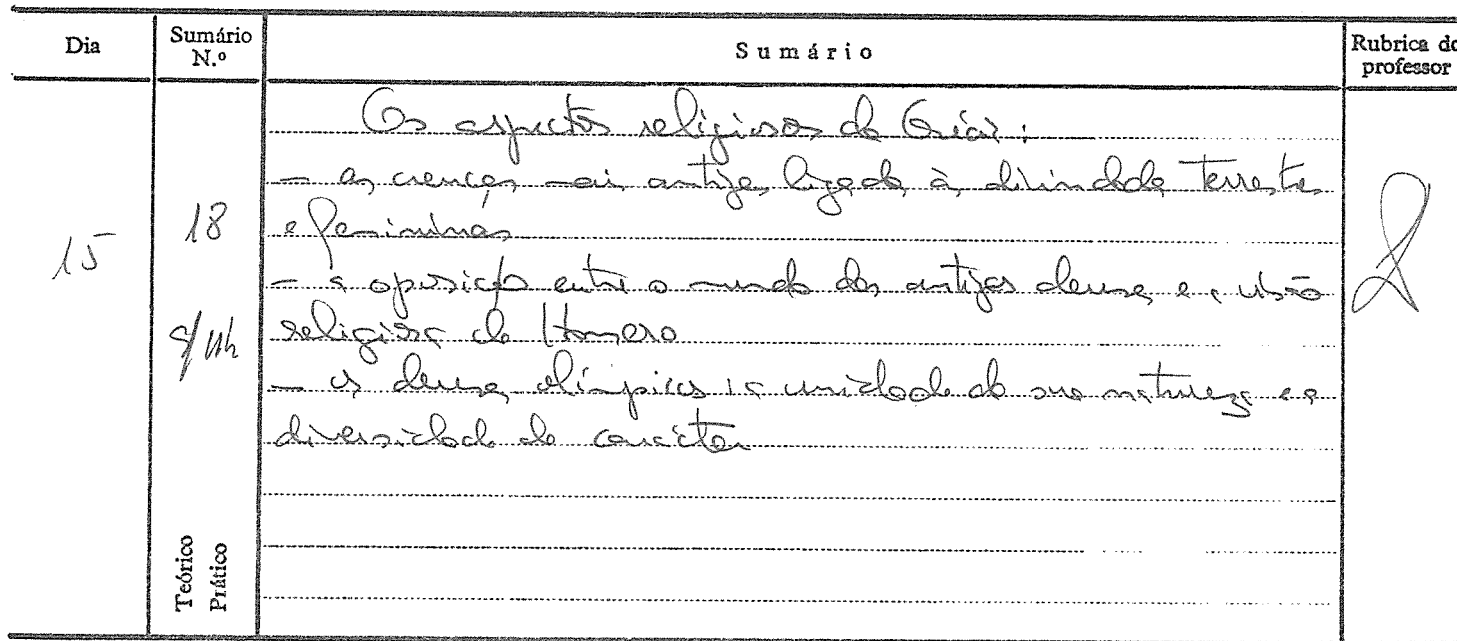 Dia
Sumário N.º
Sumário
Rubrica do professor
15
18
9/11h
Os aspectos religiosos da Grécia:
– as crenças mais antigas, ligadas às divindades terrestres
e femininas
– a oposição entre o mundo dos antigos deuses e a visão
religiosa de Homero
– os deuses olímpicos: a unidade da sua natureza e a
diversidade de carácter
Teórico
Prático